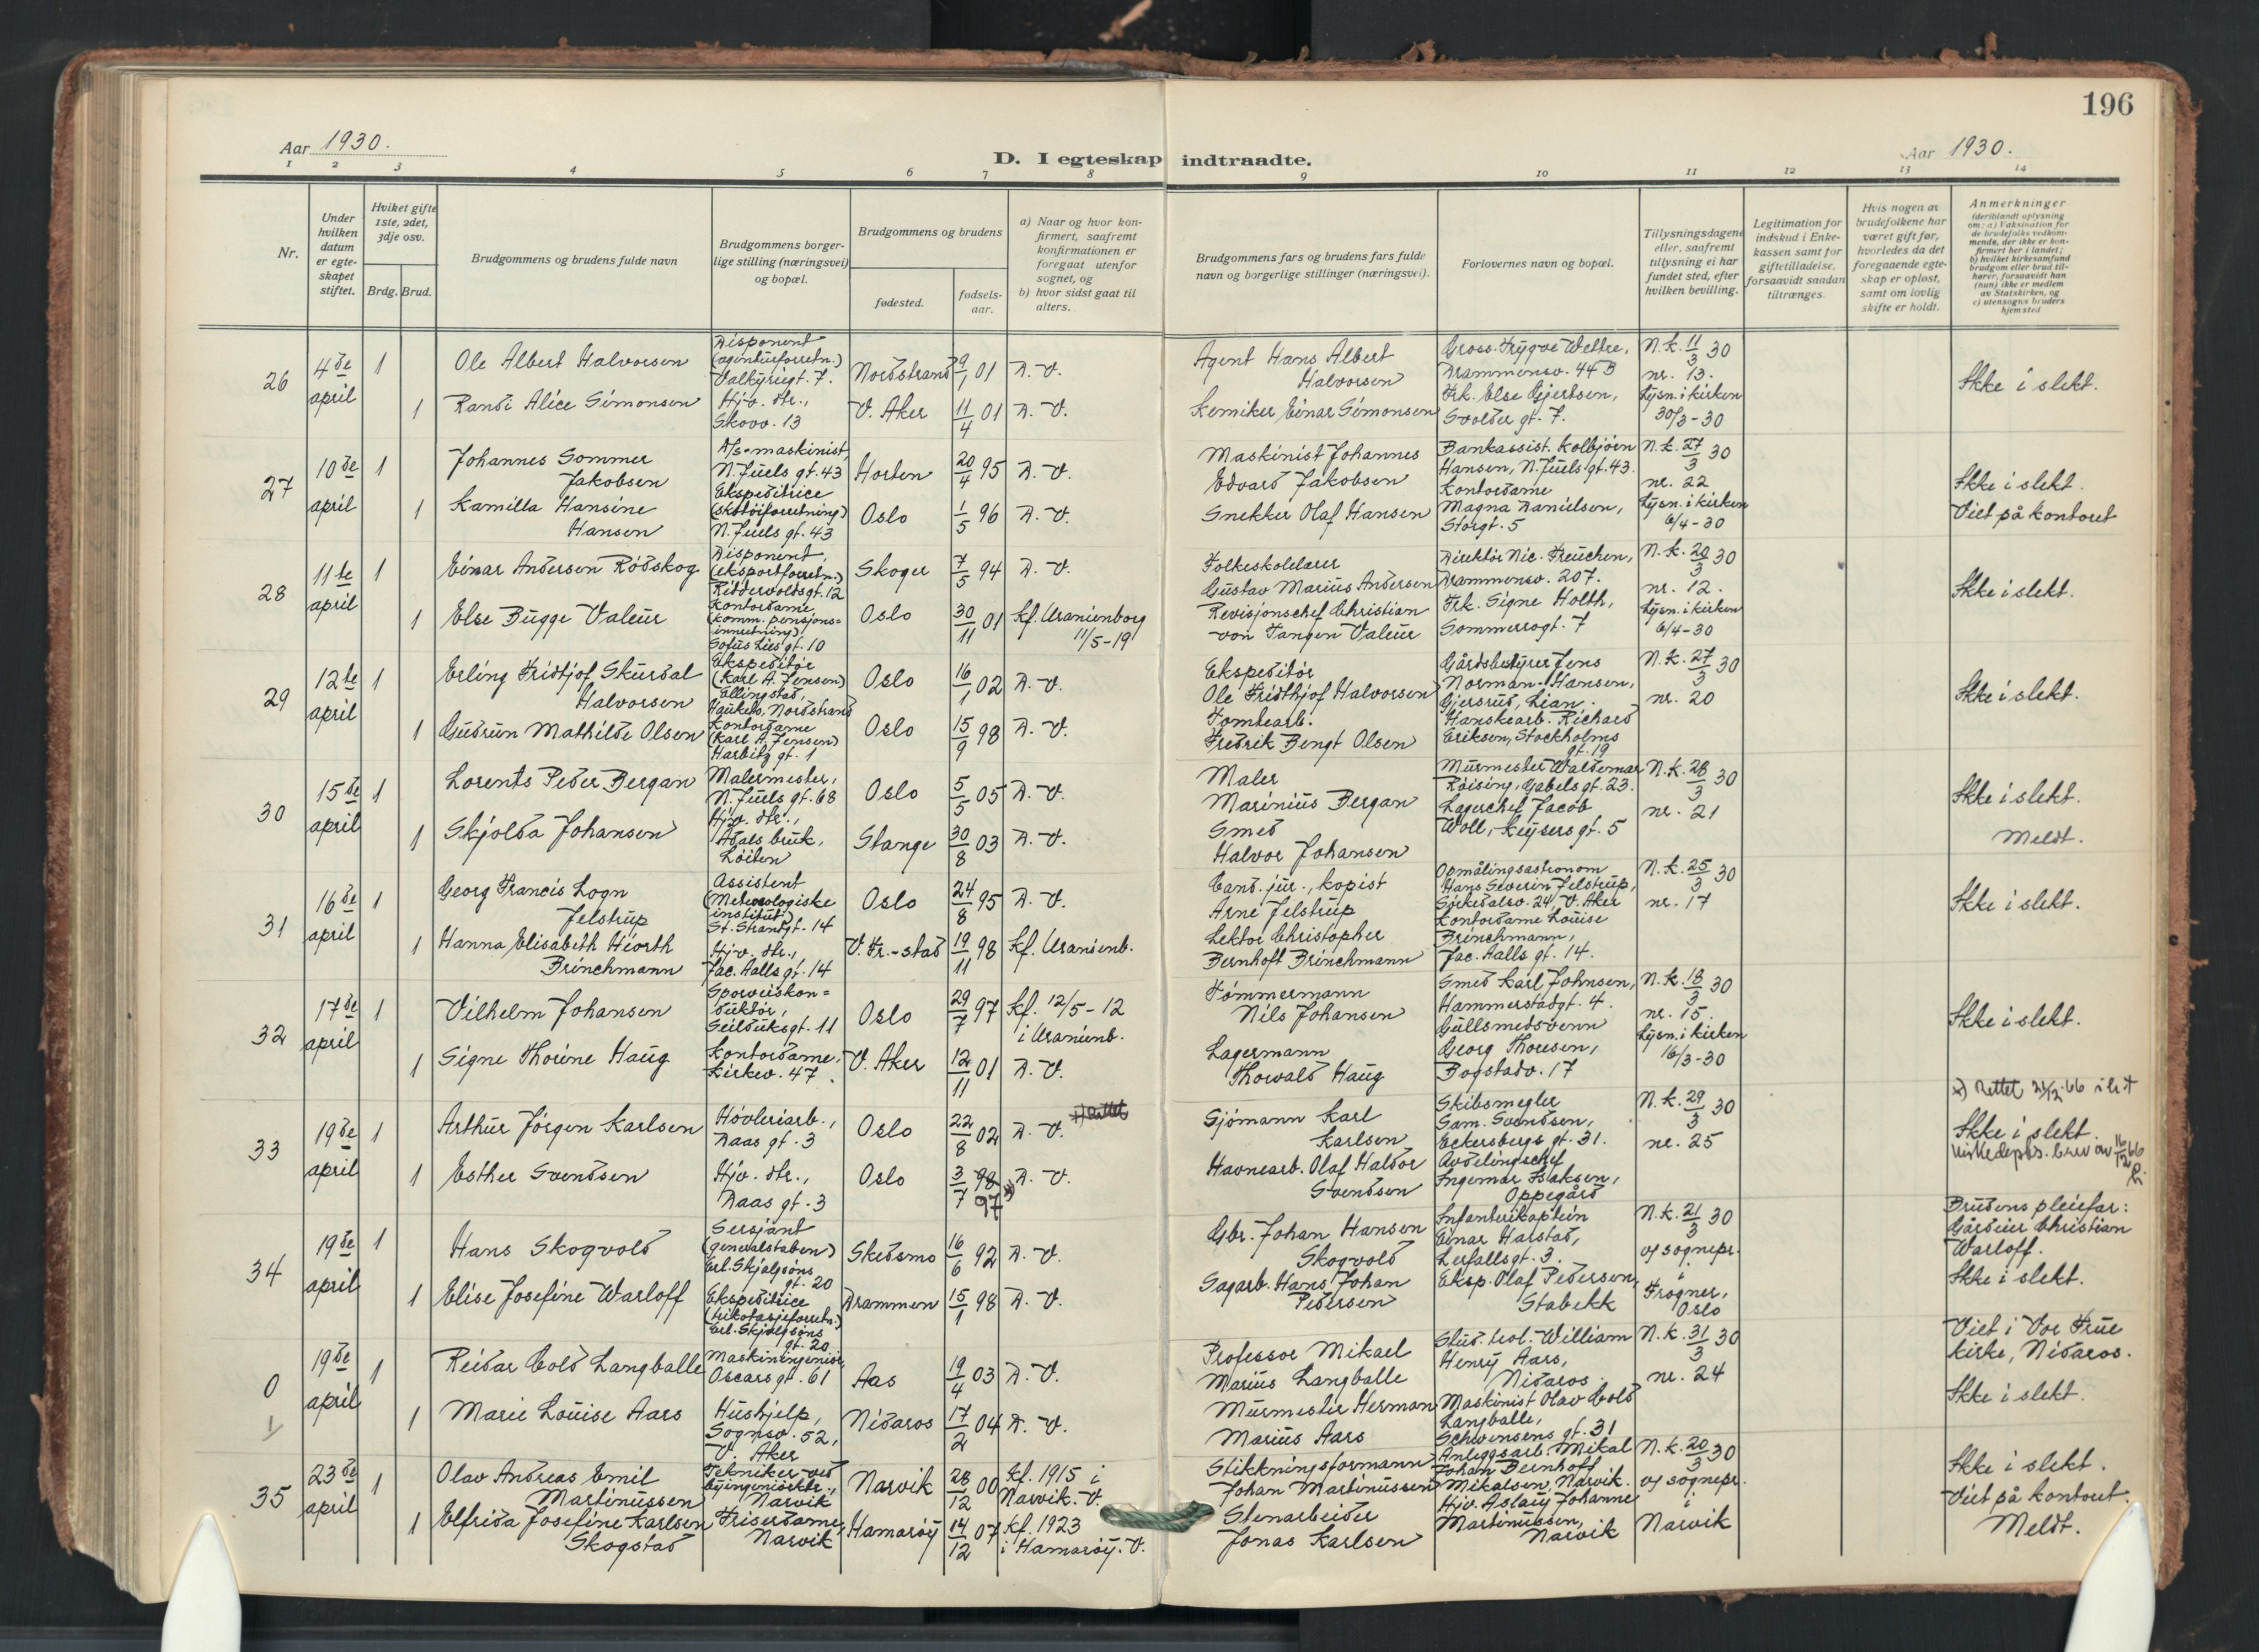 196
Aar 1930.
D. I egteskap indtraadte.
Aar 1930.
1 2 3 4 5 6 7 8 9 10 11 12 13 14
Nr.
Under hvilken datum er egteskapet stiftet.
Hvilket gifte 1ste, 2det, 3dje osv.
Brdg. Brud.
Brudgommens og brudens fulde navn
Brudgommens borgerlige stilling (næringsvei) og bopæl.
Brudgommens og brudens
fødested.
fødselsaar.
a) Naar og hvor konfirmert, saafremt konfirmationen er foregaat utenfor sognet, og
b) hvor sidst gaat til alters.
Brudgommens fars og brudens fars fulde navn og borgerlige stillinger (næringsvei).
Forlovernes navn og bopæl.
Tillysningsdagene eller, saafremt tillysning ei har fundet sted, efter hvilken bevilling.
Legitimation for indskud i Enkekassen samt for giftetilladelse, forsaavidt saadan tiltrænges.
Hvis nogen av brudefolkene har været gift før, hvorledes da det foregaaende egteskap er opløst, samt om lovlig skifte er holdt.
Anmerkninger
(deriblandt oplysning om: a) Vaksination for de brudefolks vedkommende, der ikke er konfirmert her i landet; b) hvilket kirkesamfund brudgom eller brud tilhører, forsaavidt han (hun) ikke er medlem av Statskirken, og c) utensogns bruders hjemsted
26
4de april
1
Ole Albert Halvorsen
Disponent (agenturforretn.) Valkyriegt. 7.
Nordstrand
9/1 01
D. V.
Agent Hans Albert Halvorsen
Gross. Trygve Wettre, Drammensv. 44 B
N.k. 11/3 30 nr. 13.
Ikke i slekt.
1
Randi Alice Simonsen
Hjv. dtr., Skovv. 13
V. Aker
11/4 01
D. V.
Kemiker Einar Simonsen
Frk. Else Gjertsen, Svolder gt. 7.
Lysn. i kirken 30/3-30
27
10de april
1
Johannes Sommer Jakobsen
D/s-maskinist, N. Juels gt. 43
Horten
20/4 95
D. V.
Maskinist Johannes Edvard Jakobsen
Bankassist. Kolbjørn Hansen, N. Juels gt. 43.
N.k. 27/3 30 nr. 22
Ikke i slekt.
1
Kamilla Hansine Hansen
Ekspeditrice (skotøiforretning) N. Juels gt. 43
Oslo
1/5 96
D. V.
Snekker Olaf Hansen
Kontordame Magna Danielsen, Storgt. 5
Lysn. i kirken 6/4-30
Viet på kontoret
28
11te april
1
Einar Andersen Rødskog
Disponent, (eksportforretn.) Riddervoldsgt. 12
Skoger
7/5 94
D. V.
Folkeskolelærer Gustav Marius Andersen
Direktør Nic. Freuchen, Drammensv. 207.
N.k. 20/3 30 nr. 12.
Ikke i slekt.
1
Else Bugge Valeur
Kontordame, (komm. pensjons=innretning), Sofus Lies' gt. 10
Oslo
30/11 01
kf. Uranienborg 11/5-19
Revisjonschef Christian von Tangen Valeur
Frk. Signe Holth, Sommerrogt. 7
Lysn. i kirken 6/4-30
29
12te april
1
Erling Fridtjof Skurdal Halvorsen
Ekspeditør (Karl A. Jensen) Ellingstad, Haukelo, Nordstrand
Oslo
16/1 02
D. V.
Ekspeditør Ole Fridthjof Halvorsen
Gårdsbestyrer Jens Norman-Hansen, Gjersrud, Lian.
N.k. 27/3 30 nr. 20
Ikke i slekt.
1
Gudrun Mathilde Olsen
Kontordame (Karl A. Jensen) Harbitz gt. 1
Oslo
15/9 98
D. V.
Tomtearb. Fredrik Bengt Olsen
Hanskearb. Richard Eriksen, Stockholms gt. 19
30
15de april
1
Lorents Peder Bergan
Malermester, N. Juels gt. 68
Oslo
5/5 05
D. V.
Maler Marinius Bergan
Murmester Waldemar Røising, Gabels gt. 23.
N.k. 28/3 30 nr. 21
Ikke i slekt.
1
Skjolda Johansen
Hjv. dtr., Ådals bruk, Løiten
Stange
30/8 03
D. V.
Smed Halvor Johansen
Lagerchef Jacob Woll, Keysers gt. 5
Meldt.
31
16de april
1
Georg Francis Logn Jelstrup
Assistent (Meteorologiske institut) St. Strandgt. 14
Oslo
24/8 95
D. V.
Cand. jur., kopist Arne Jelstrup
Opmålingsastronom Hans Severin Jelstrup, Sørkedalsv. 24, V. Aker
N.k. 25/3 30 nr. 17
Ikke i slekt.
1
Hanna Elisabeth Hiorth Brinchmann
Hjv. dtr., Jac. Aalls gt. 14
V. Fr.-stad
19/11 98
Kf. Uranienb.
Lektor Christopher Bernhoft Brinchmann
Kontordame Louise Brinchmann, Jac. Aalls gt. 14.
32
17de april
1
Vilhelm Johansen
Sporveiskon=duktør, Seilduksgt. 11
Oslo
29/7 97
Kf. 12/5-12 i Uranienb.
Tømmermann Nils Johansen
Smed Karl Johnsen, Hammerstadgt. 4.
N.k. 18/3 30 nr. 15.
Ikke i slekt.
1
Signe Thorine Haug
Kontordame, Kirkev. 47.
V. Aker
12/11 01
D. V.
Lagermann Thorvald Haug
Gullsmedsvenn Georg Thoresen, Bogstadv. 17
Lysn. i kirken 16/3-30
33
19de april
1
Arthur Jørgen Karlsen
Høvleriarb., Daas gt. 3
Oslo
22/8 02
D. V.
Sjømann Karl Karlsen
Skibsmegler Sam. Svendsen, Eckersbergs gt. 31.
N.k. 29/3 30 nr. 25
x) Rettet
Ikke i slekt.
1
Esther Svendsen
Hjv. dtr., Daas gt. 3
Oslo
3/7 98 97 x)
D. V.
Havnearb. Olaf Haldor Svendsen
Avdelingschef Ingemar Isaksen, Oppegård
34
19de april
1
Hans Skogvold
Sersjant (generalstaben) Erl. Skjalgsøns gt. 20
Skedsmo
16/6 92
D. V.
Gbr. Johan Hansen Skogvold
Infanterikaptein Einar Harstad, Lerfallsgt. 3.
N.k. 21/3 30 og sognepr. i Frogner, Oslo
Brudens pleiefar: Gårdeier Christian Warloff.
Ikke i slekt.
1
Elise Josefine Warloff
Ekspeditrice (trikotasjeforretn.) Erl. Skjalgsøns gt. 20
Drammen
15/1 98
D. V.
Sagarb. Hans Johan Pedersen
Eksp. Olaf Pedersen, Stabekk
0
19de april
1
Reidar Cold Langballe
Maskiningeniør, Oscars gt. 61
Aas
19/4 03
D. V.
Professor Mikael Marius Langballe
Stud. teol. William Henry Aars, Nidaros
N.k. 31/3 30 nr. 24
Viet i Vor Frue kirke, Nidaros.
Ikke i slekt.
1
Marie Louise Aars
Hushjelp, Sognsv. 52, V. Aker
Nidaros
17/2 04
D. V.
Murmester Herman Marius Aars
Maskinist Olav Cold Langballe, Schwensens gt. 31
35
23de april
1
Olav Andreas Emil Martinussen
Tekniker ved byingeniørktr., Narvik
Narvik
28/12 00
kf. 1915 i Narvik. V.
Stikkningsformann Johan Martinussen
Anleggsarb. Mikal Johan Bernhoff Mikalsen, Narvik.
N.k. 20/3 30 og sognepr. i Narvik
Ikke i slekt.
Viet på kontoret.
Meldt.
1
Elfrida Josefine Karlsen Skogstad
Friserdame, Narvik
Hamarøy
14/12 07
kf. 1923 i Hamarøy. V.
Stenarbeider Jonas Karlsen
Hjv. Aslaug Johanne Martinussen, Narvik